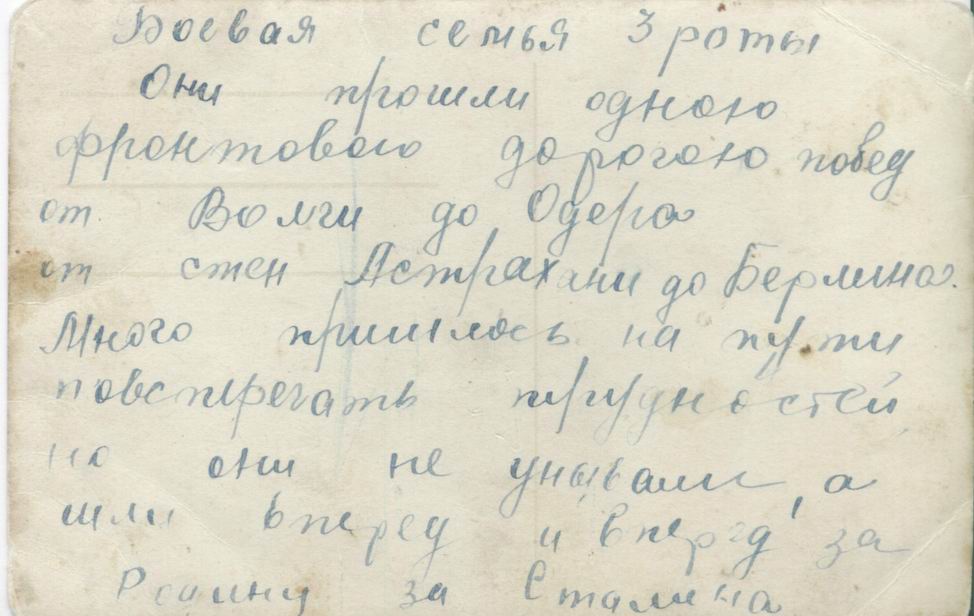 Боевая семья 3 роты
Они прошли одною
фронтовою дорогою побед
от Волги до Одера
от стен Астрахани до Берлина.
Много пришлось на пути
повстречать трудностей
но они не унывали, а
шли вперед и вперед за
Родину за Сталина